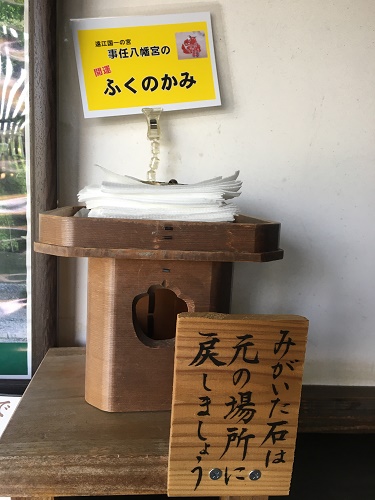 遠江国一の宮
事任八幡宮の
開運
ふくのかみ
みがいた石は
元の場所に
戻しましょう